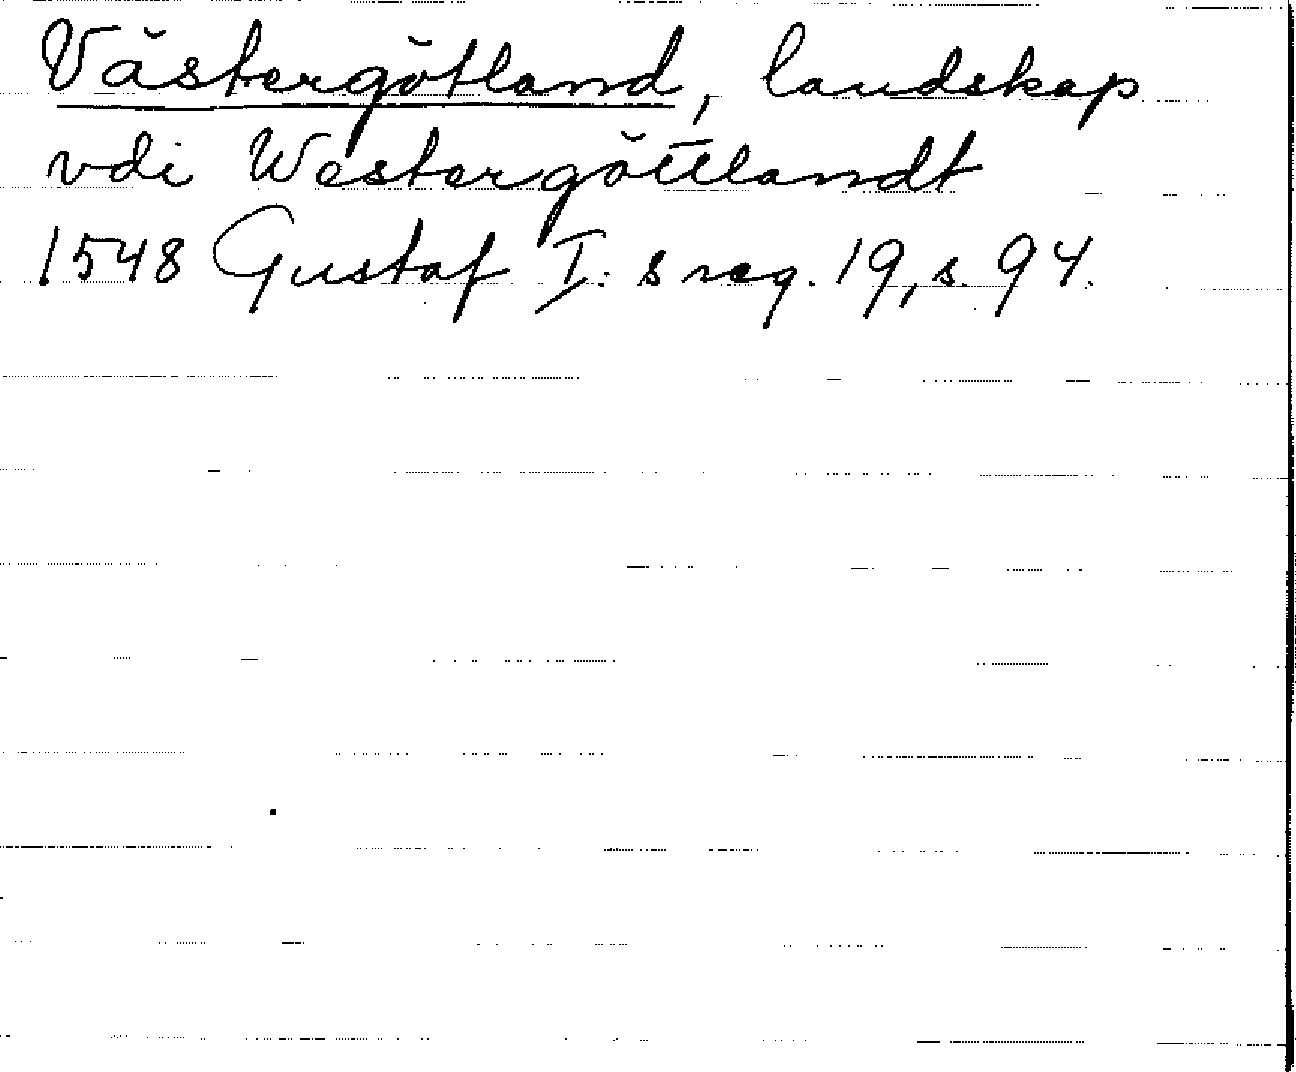 Västergötland, landskap
vdi Westergöttlandt
1548 Gustaf I:s reg. 19, s. 94.